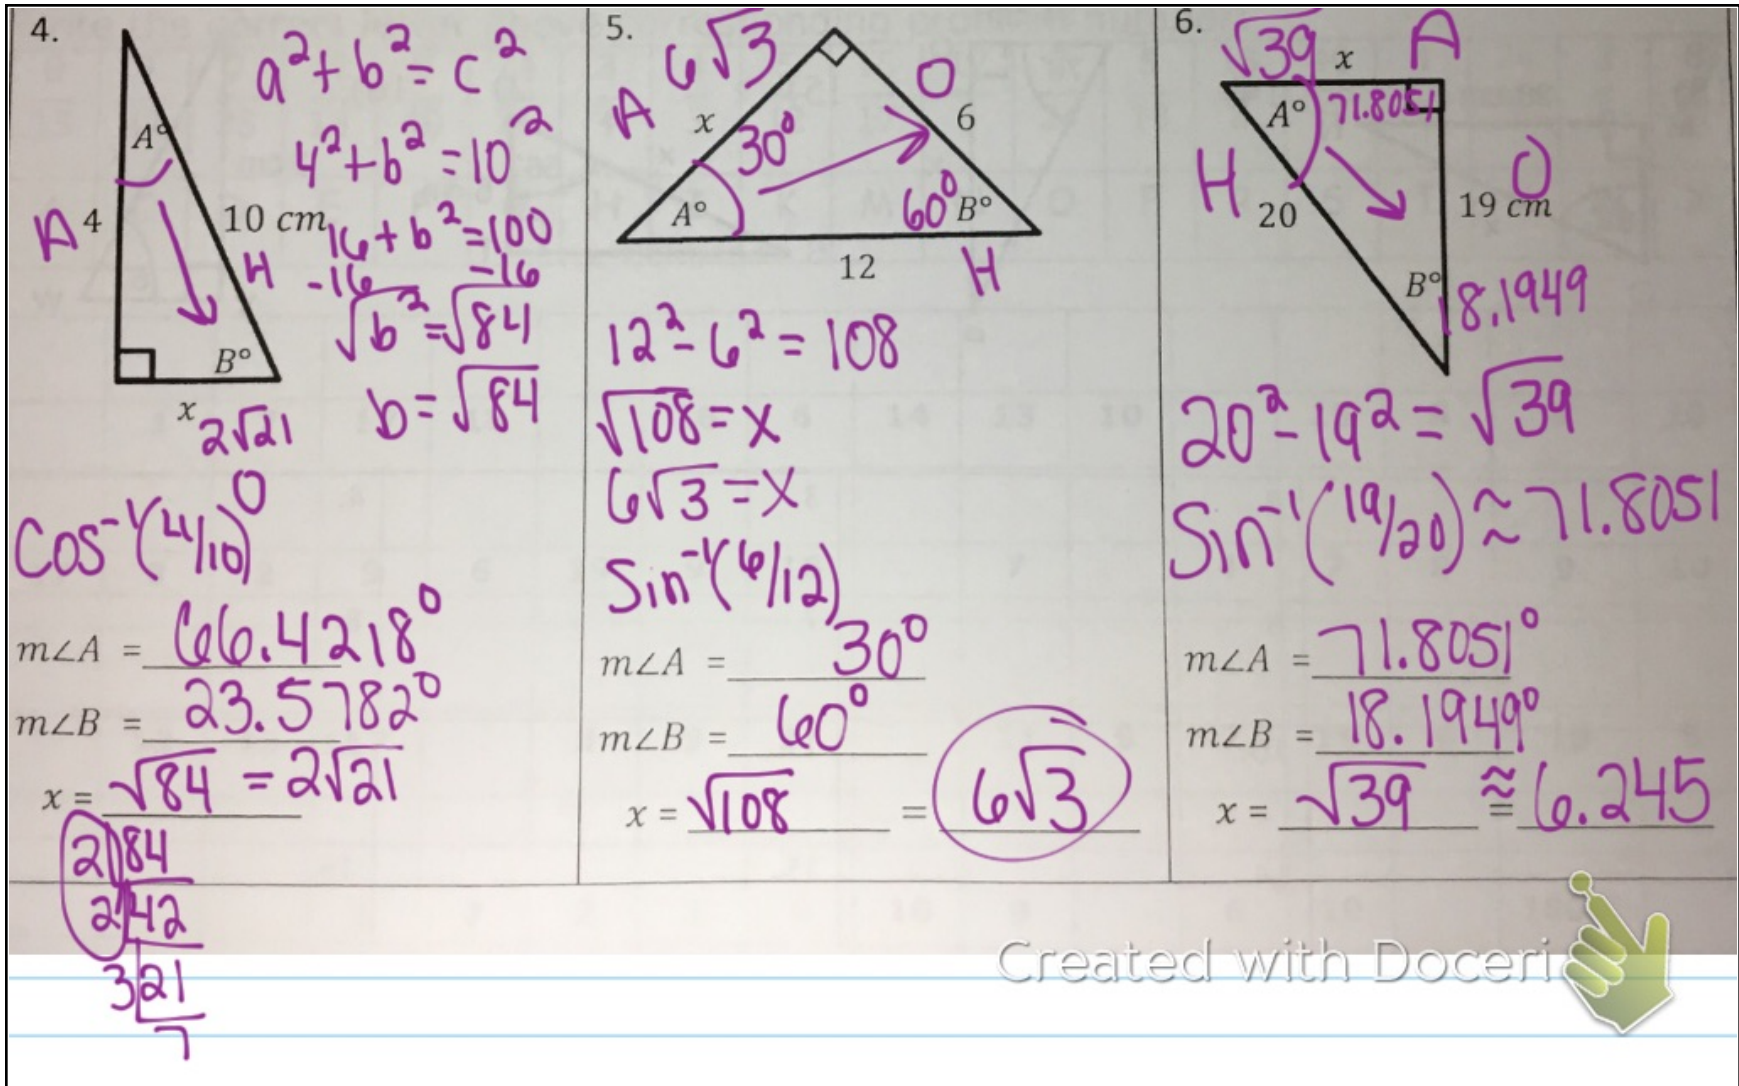 4.
A°
A 4
10 cm
H
B°
x
2√21
O
a² + b² = c²
4² + b² = 10²
16 + b² = 100
-16 -16
√b² = √84
b = √84
Cos⁻¹(4/10)
m∠A = 66.4218°
m∠B = 23.5782°
x = √84 = 2√21
2 84
2 42
3 21
7
5.
6√3
A
x
30°
O
6
A°
60° B°
12
H
12² - 6² = 108
√108 = x
6√3 = x
Sin⁻¹(6/12)
m∠A = 30°
m∠B = 60°
x = √108 = 6√3
6.
√39
x
A
A° 71.8051
H
20
O
19 cm
B°
18.1949
20² - 19² = √39
Sin⁻¹(19/20) ≈ 71.8051
m∠A = 71.8051°
m∠B = 18.1949°
x = √39 ≈ = 6.245
Created with Doceri